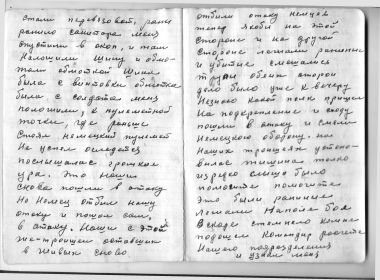 стали перевязовать, рани
ранило санитара меня
опустили в окоп, и там
Наложили Шину и обмо-
тали обмоткой Шина
была с винтовки обмотка
была с солдата меня
положили, к пулеметной
точки, где раньше
Стоял немецкий пулемет
Не успел оглядется
послышалось громкое
ура. Это наши
снова пошли в атаку
Но Немец отбил нашу
атаку и пошол сам,
в атаку. Наши с этой
же траншеи оставшие
в живых снова
отбили атаку немцев
теперь якоби на этой
стороне и на другой
стороне лежали раненные
и убитые смешались
трупы обеих сторон
дело было уже к вечеру
Незнаю какой полк пришел
На подкрепление и сходу
пошли в атаку и смели
Немецкую оборону. на
Наших траншеях устоно-
вилась тишина только
изредко слышно было
помогите помогите
Это были раненные
Лежали На поле боя
Вскоре стемнело комне
подошел Командир роты
Нашего подразделения
и узнал меня